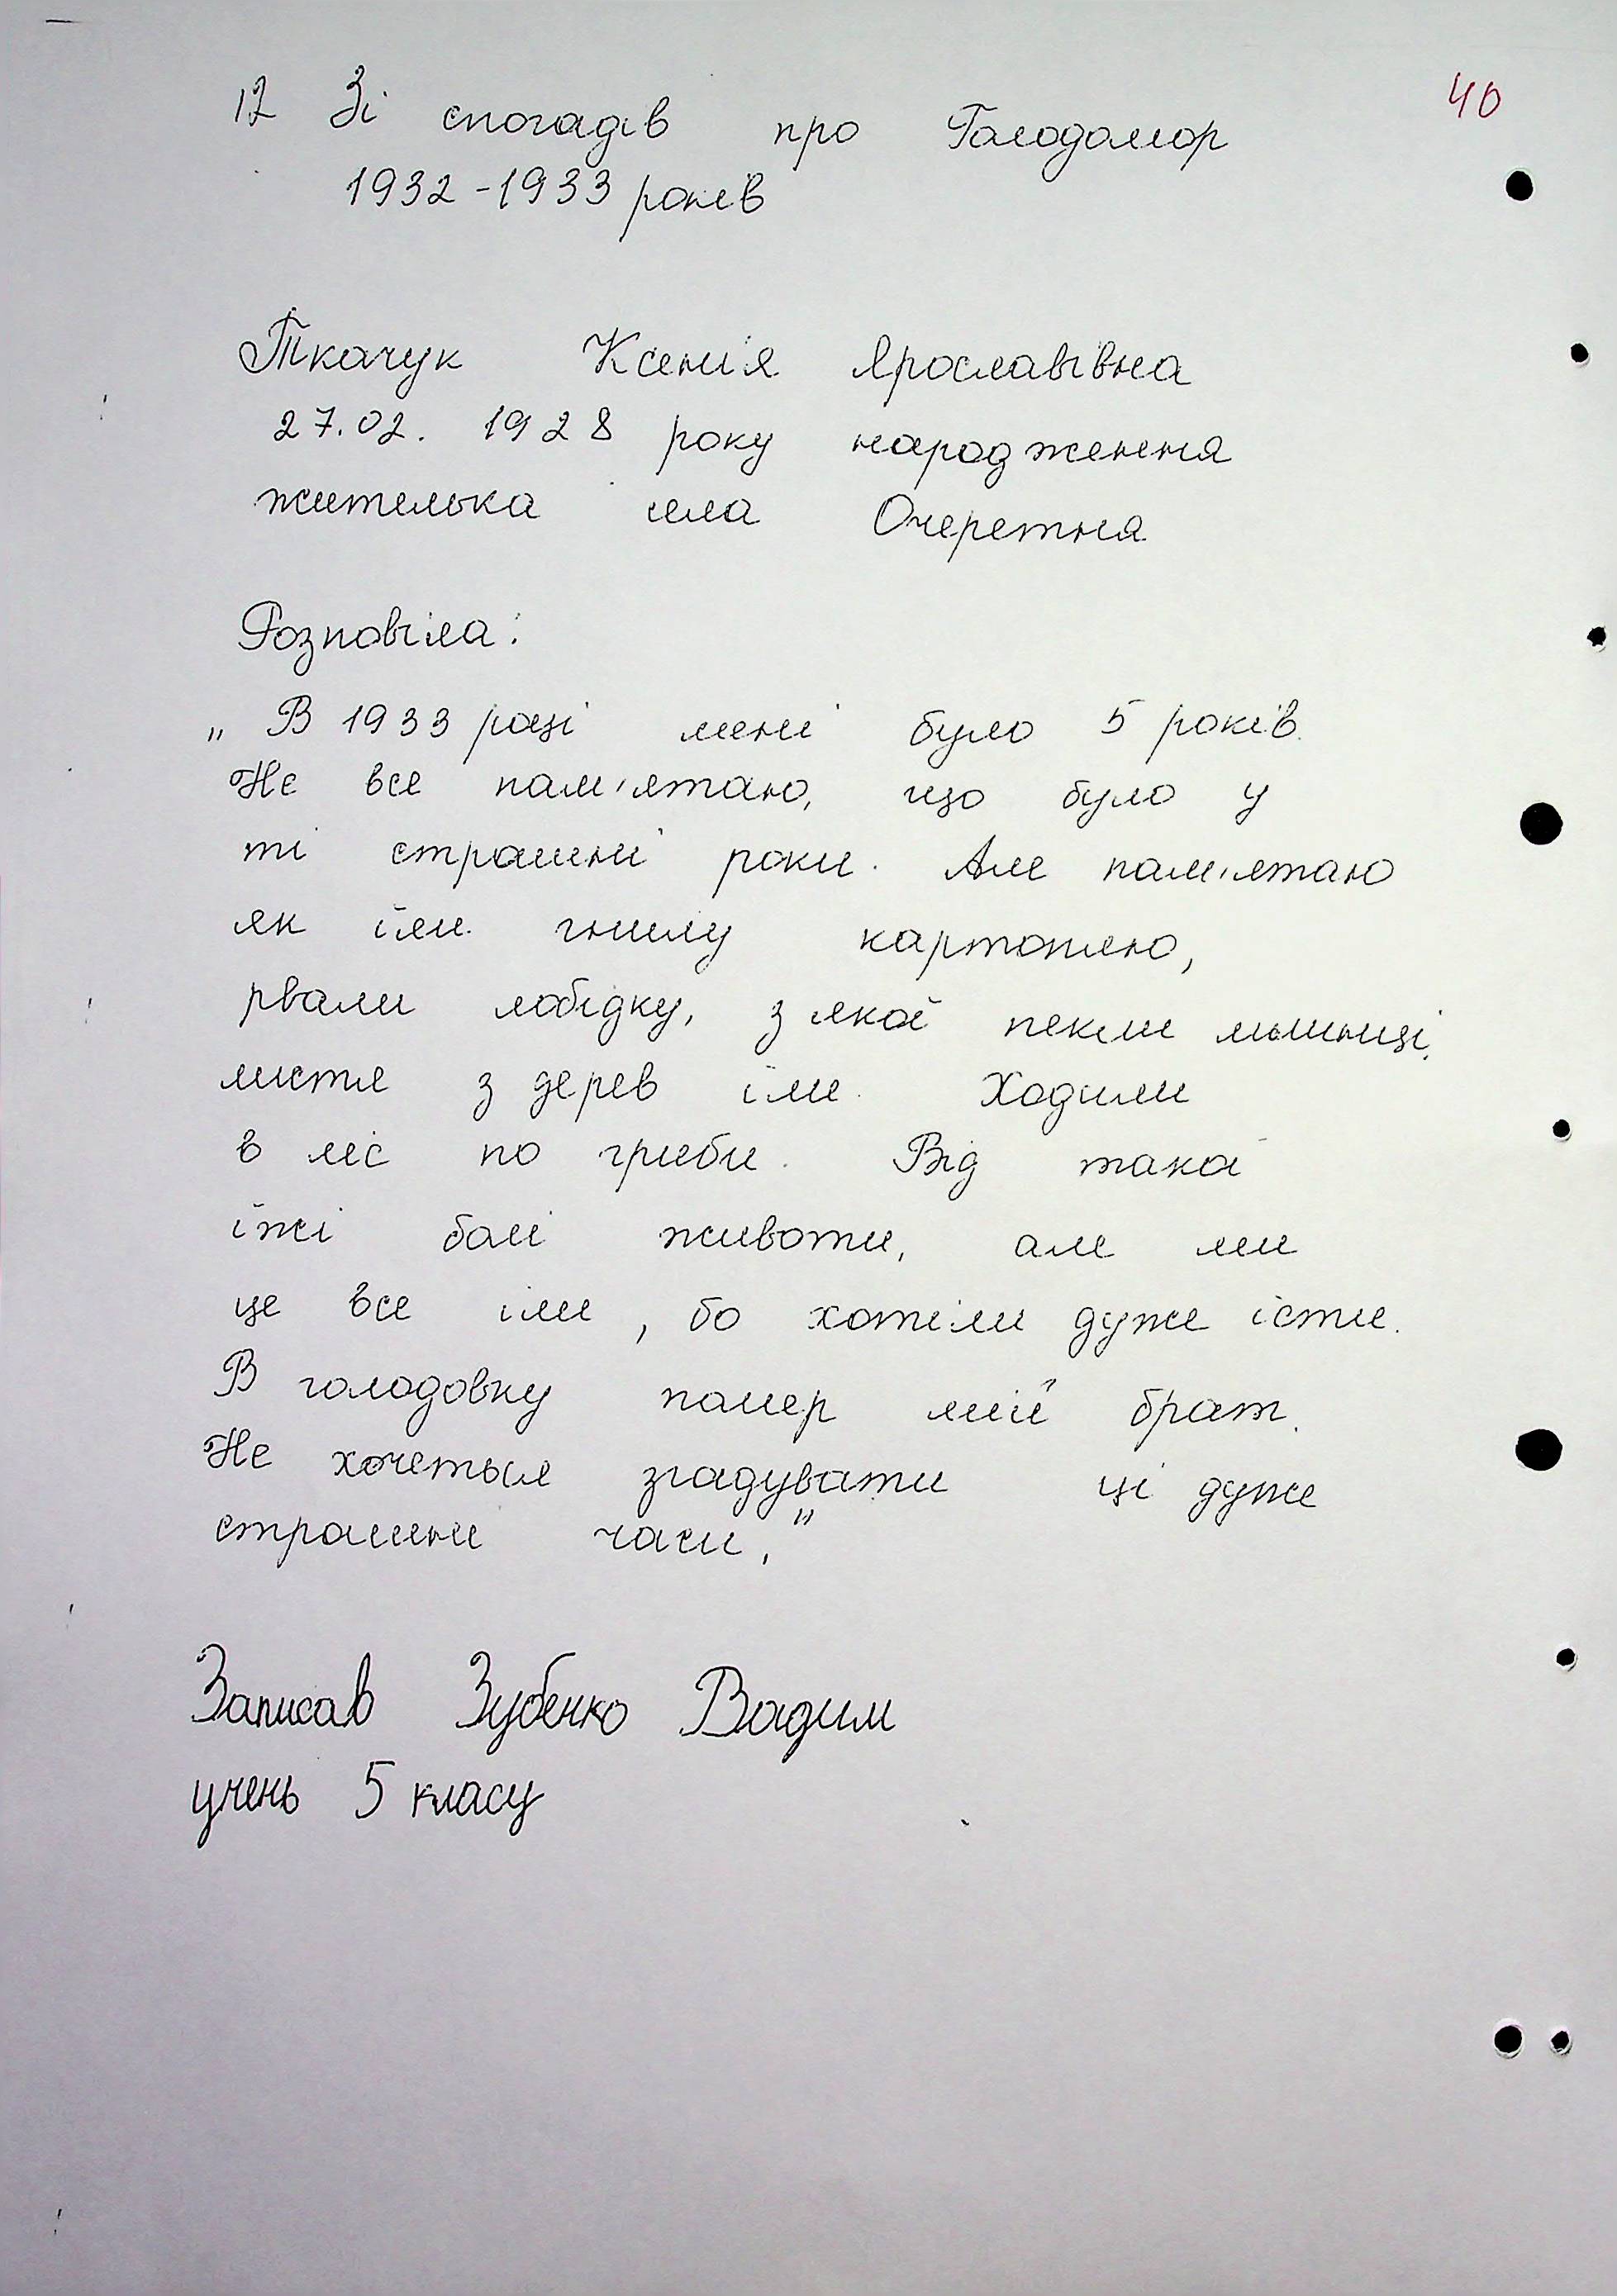 40
12 Зі спогадів про Голодомор
1932-1933 років
Ткачук Ксенія Ярославівна
27.02. 1928 року народження
жителька села Очеретня
Розповіла:
„В 1933 році мені було 5 років.
Не все пам'ятаю, що було у
ті страшні роки. Але пам'ятаю
як їли гнилу картоплю,
рвали лобідку, з якої пекли млинці,
листя з дерев їли. Ходили
в ліс по гриби. Від такої
їжі болі животи, але ми
це все їли, бо хотіли дуже їсти.
В голодовку помер мій брат.
Не хочеться згадувати ці дуже
страшни часи."
Записав Зубенко Вадим
учень 5 класу